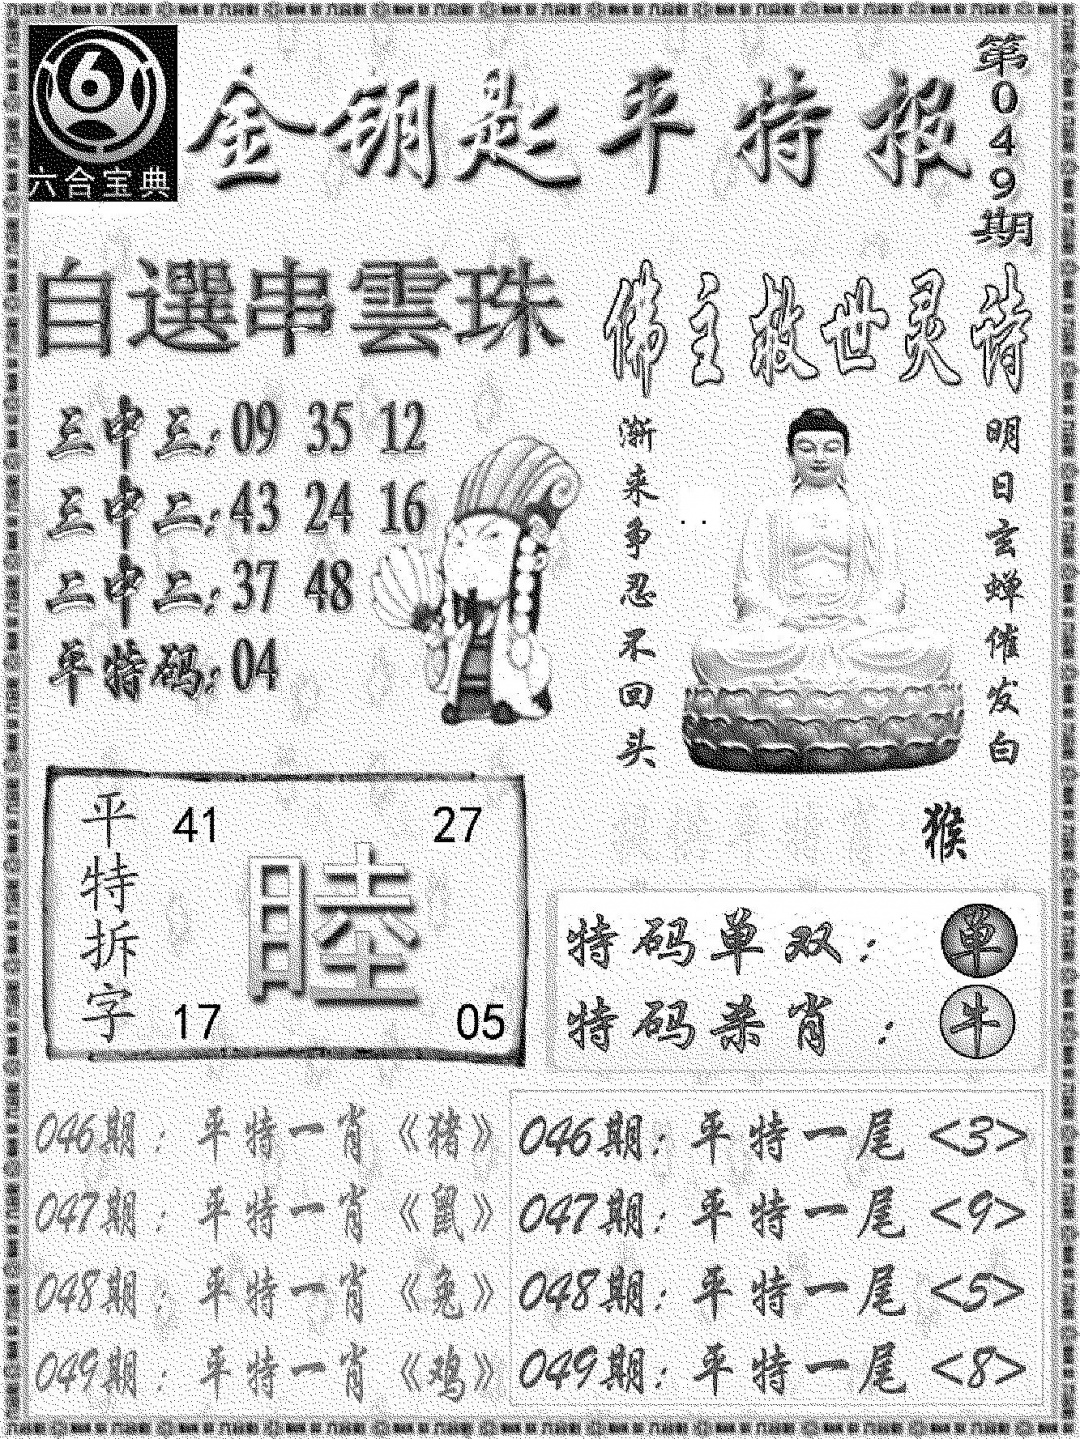 6
六合宝典
金钥匙平特报
第049期
自選串雲珠
三中三:09 35 12
三中二:43 24 16
二中二:37 48
平特码:04
佛主救世灵诗
明日玄蝉催发白
渐来争忍不回头
猴
平特拆字
41 27
睦
17 05
特码单双:单
特码杀肖:牛
046期:平特一肖《猪》
047期:平特一肖《鼠》
048期:平特一肖《兔》
049期:平特一肖《鸡》
046期:平特一尾<3>
047期:平特一尾<9>
048期:平特一尾<5>
049期:平特一尾<8>